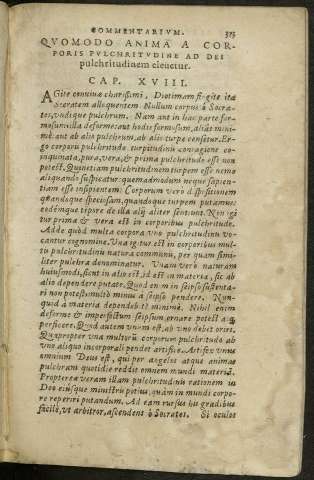 COMMENTARIVM. 323
QVOMODO ANIMA A COR-
PORIS PVLCHRITVDINE AD DEI
pulchritudinem eleuetur.
CAP. XVIII.
AGite conuiuæ charissimi, Diotimam fingite ita
Socratem alloquentem. Nullum corpus ô Socra-
tes, vndique pulchrum. Nam aut in hac parte for-
mosum illa deforme: aut hodie formosum, aliàs mini-
mè: aut ab alio pulchrum, ab alio turpe censetur. Er-
go corporū pulchritudo turpitudinis contagione co-
inquinata, pura, vera, & prima pulchritudo esse non
potest. Quinetiam pulchritudinem turpem esse nemo
aliquando suspicatur: quemadmodum neque sapien-
tiam esse insipientem. Corporum vero dispositionem
quandoque speciosam, quandoque turpem putamus:
eodémque tēpore de illa alij aliter sentiunt. Non igi
tur prima & vera est in corporibus pulchritudo.
Adde quòd multa corpora vno pulchritudinis vo-
cantur cognomine. Vna igitur est in corporibus mul-
tis pulchritudinis natura communis, per quam simi-
liter pulchra denominatur. Vnam verò naturam
huiusmodi, sicut in alio est, id est in materia, sic ab
alio dependere putate. Quod enim in seipso sustenta-
ri non potest, multò minus à seipso pendere. Nun-
quid à materia dependebit? minimè. Nihil enim
deforme & imperfectum seipsum ornare potest ac
perficere. Quod autem vnum est, ab vno debet oriri.
Quapropter vna multorū corporum pulchritudo ab
vno aliquo incorporali pendet artifice. Artifex vnus
omnium Deus est, qui per angelos atque animas
pulchram quotidie reddit omnem mundi materiā.
Propterea veram illam pulchritudinis rationem in
Deo eiúsque ministris potius, quàm in mundi corpo-
re reperiri putandum. Ad eam rursus his gradibus
facilè, vt arbitror, ascendent ô Socrates. Si oculos